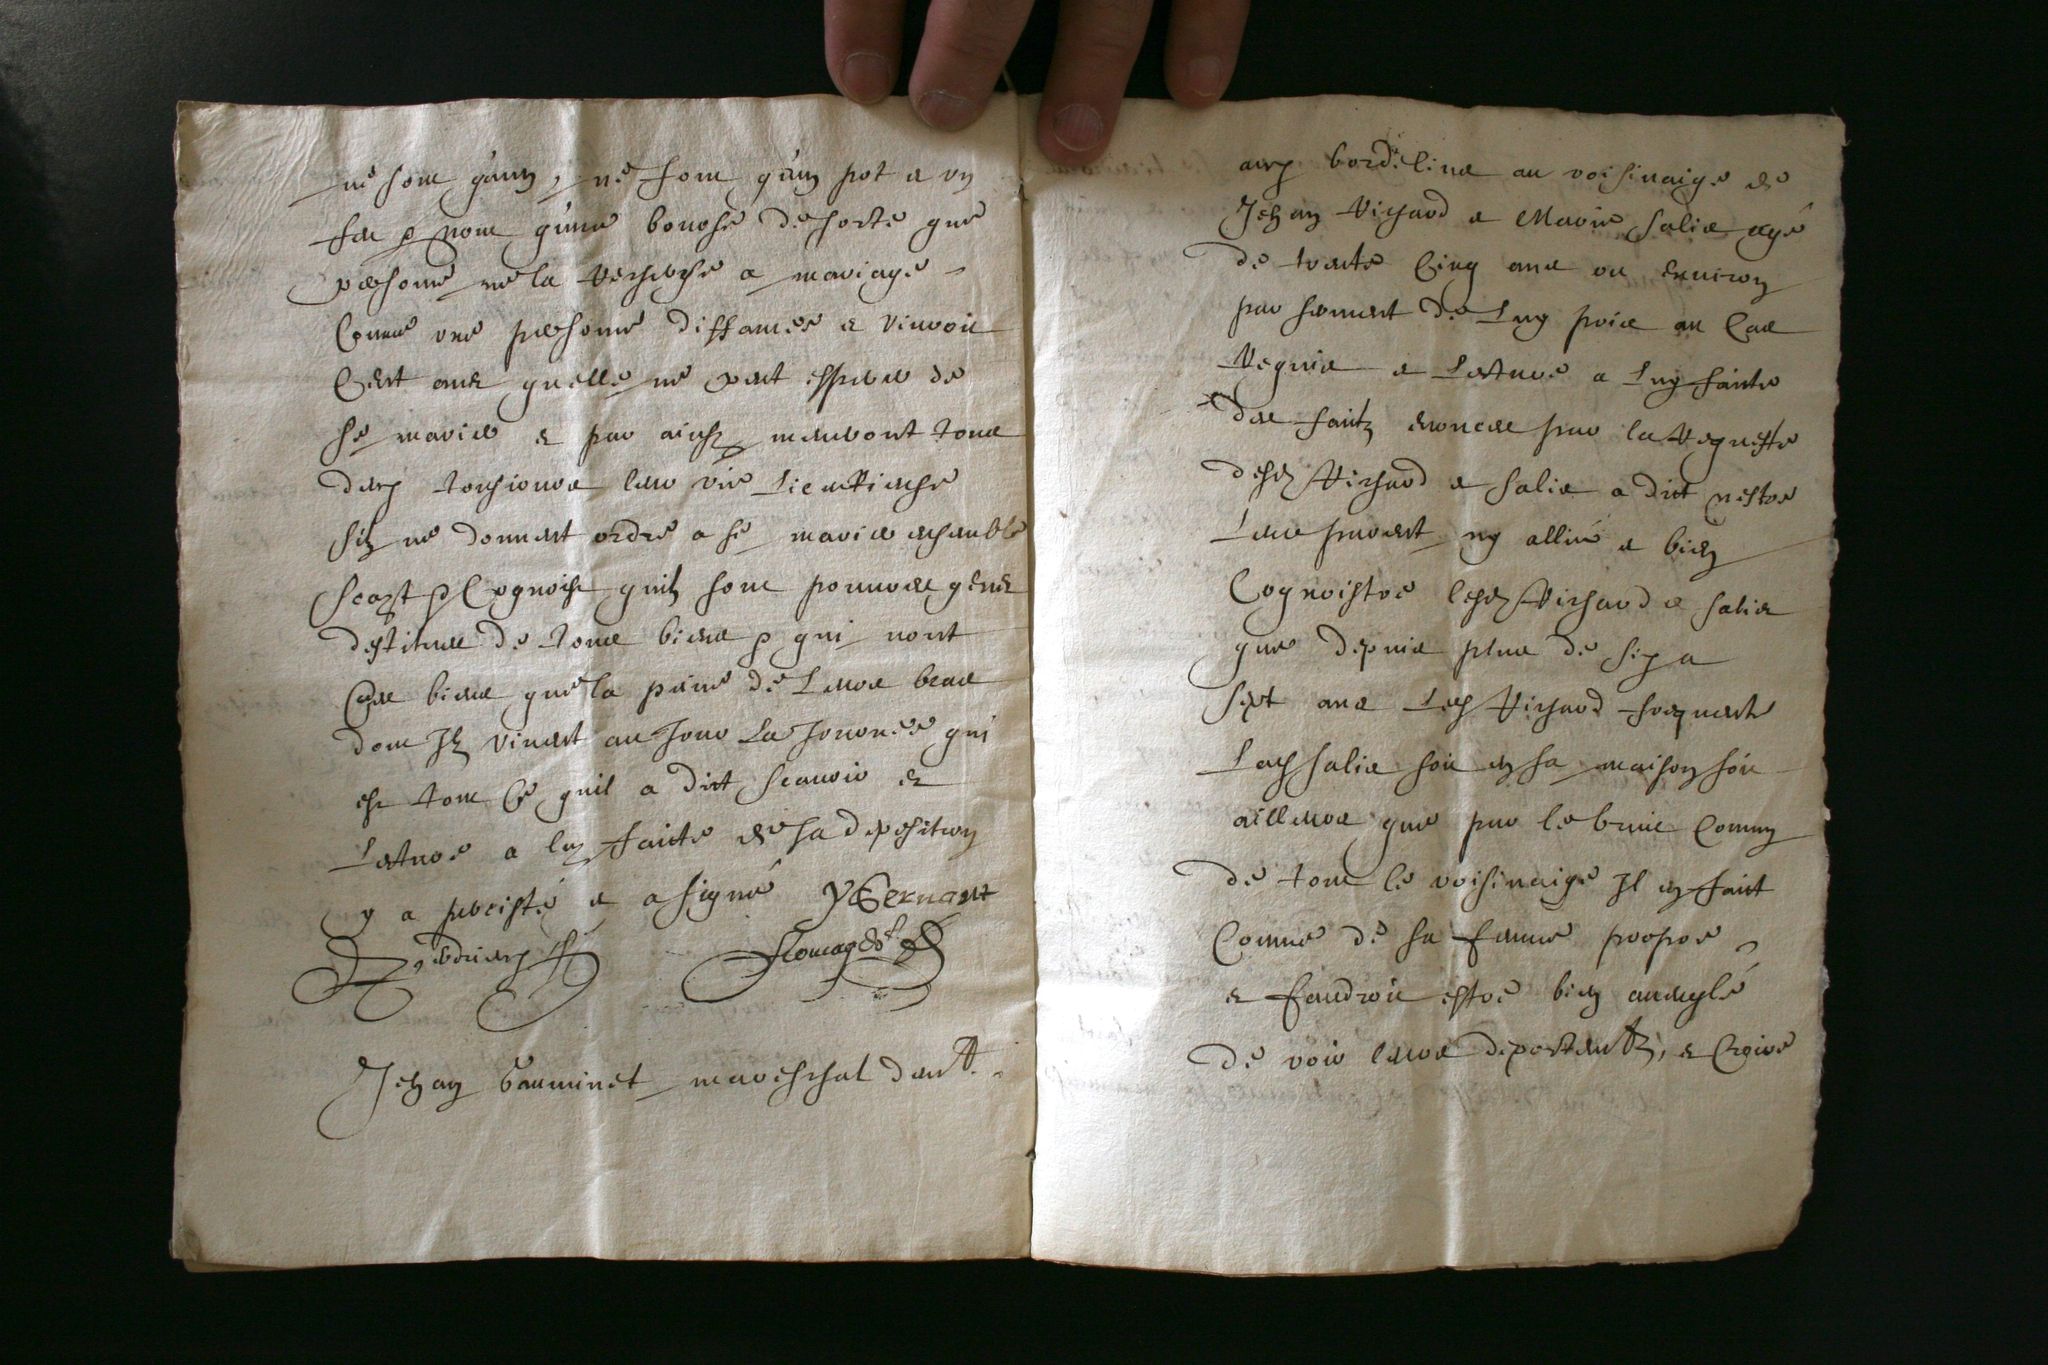 ne sont qu'un, ne font qu'un pot et un
feu et n'ont qu'une bourse de sorte que
personne ne la recherche a mariage
Comme une personne diffamee et vivroit
Cent ans quelle ne peut esperer de
se marier et par ainsy mourront tous
deux tousjours leur vie
silz ne donnent ordre a se marier ensemble
scayt et Cognoist quilz sont pauvres gens
destitues de tous biens et qui nont
autres biens que la peine de Leurs bras
dont Ilz vivent au Jour La Journee qui
est tout Ce quil a dict scavoir et
Lecture a luy faicte de sa deposition
y a percisté et a signé YBernart
Jehan bauminet mareschal demt.
aux bordelines au voisinaige de
Jehan Richard et Marie salies agé
de trente Cinq ans ou environ
par serment de Luy pris au Cas
Requis et Lecture a Luy faicte
des faictz enonces par la Requeste
desd Richard et salies a dict nestre
Leur parent ny allié et bien
Cognoistre lesd Richard et salies
que depuis plus de six a
sept ans Led Richard frequente
Lad salies soit en sa maison soit
ailleurs que par le bruit Commun
de tout le voisinaige Il en faict
Comme de sa femme propre
et faudroit estre bien aveuglé
de voir leurs deportemtz, et Croire